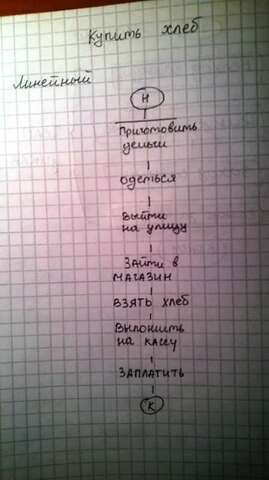 Купить хлеб
Линейный
Н
Приготовить
деньги
одеться
выйти
на улицу
Зайти в
магазин
взять хлеб
выложить
на кассу
Заплатить
К